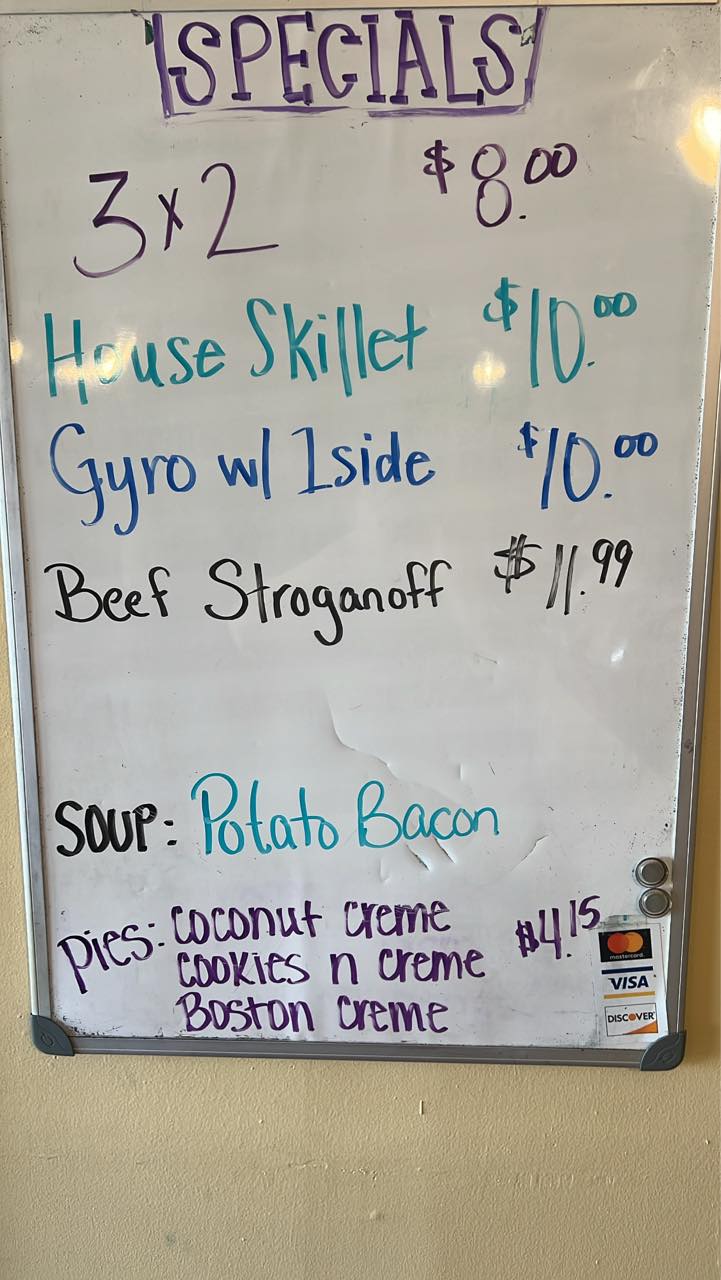 SPECIALS
3x2 $8.00
House Skillet $10.00
Gyro w/ 1side $10.00
Beef Stroganoff $11.99
SOUP: Potato Bacon
pies: coconut creme $4.15
cookies n creme
Boston creme
mastercard
VISA
DISCOVER